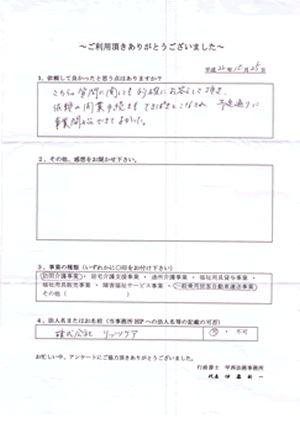 ～ご利用頂きありがとうございました～
平成22年10月25日
1．依頼して良かったと思う点はありますか？
こちらの質問に関しても的確にお答えして頂き、
依頼の開業手続きもてきぱきとこなされ、予定通りに
事業開始できてよかった。
2．その他、感想をお聞かせ下さい。
3．事業の種類（いずれかに○印をお付け下さい）
訪問介護事業・居宅介護支援事業・通所介護事業・福祉用具貸与事業・
福祉用具販売事業・障害福祉サービス事業・一般乗用旅客自動車運送事業
その他（　　　　　）
4．法人名またはお名前（当事務所HPへの法人名等の記載の可否）
株式会社 リッツケア　可・不可
お忙しい中、アンケートにご協力頂きありがとうございました。
行政書士　甲西法務事務所
代表 伊藤